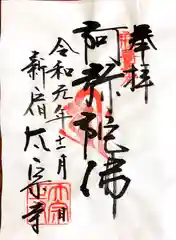 奉拝
阿弥陀佛
令和元年十二月一日
新宿太宗寺